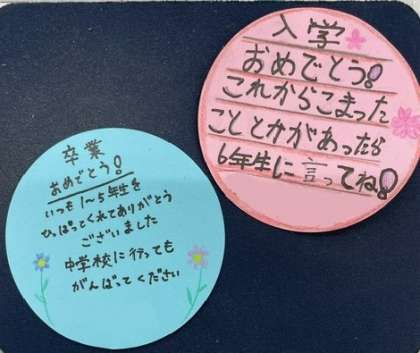 入学
おめでとう!
これからこまった
こととかがあったら
6年生に言ってね!
卒業
おめでとう!
いつも1~5年生を
ひっぱってくれてありがとう
ございました
中学校に行っても
がんばってください